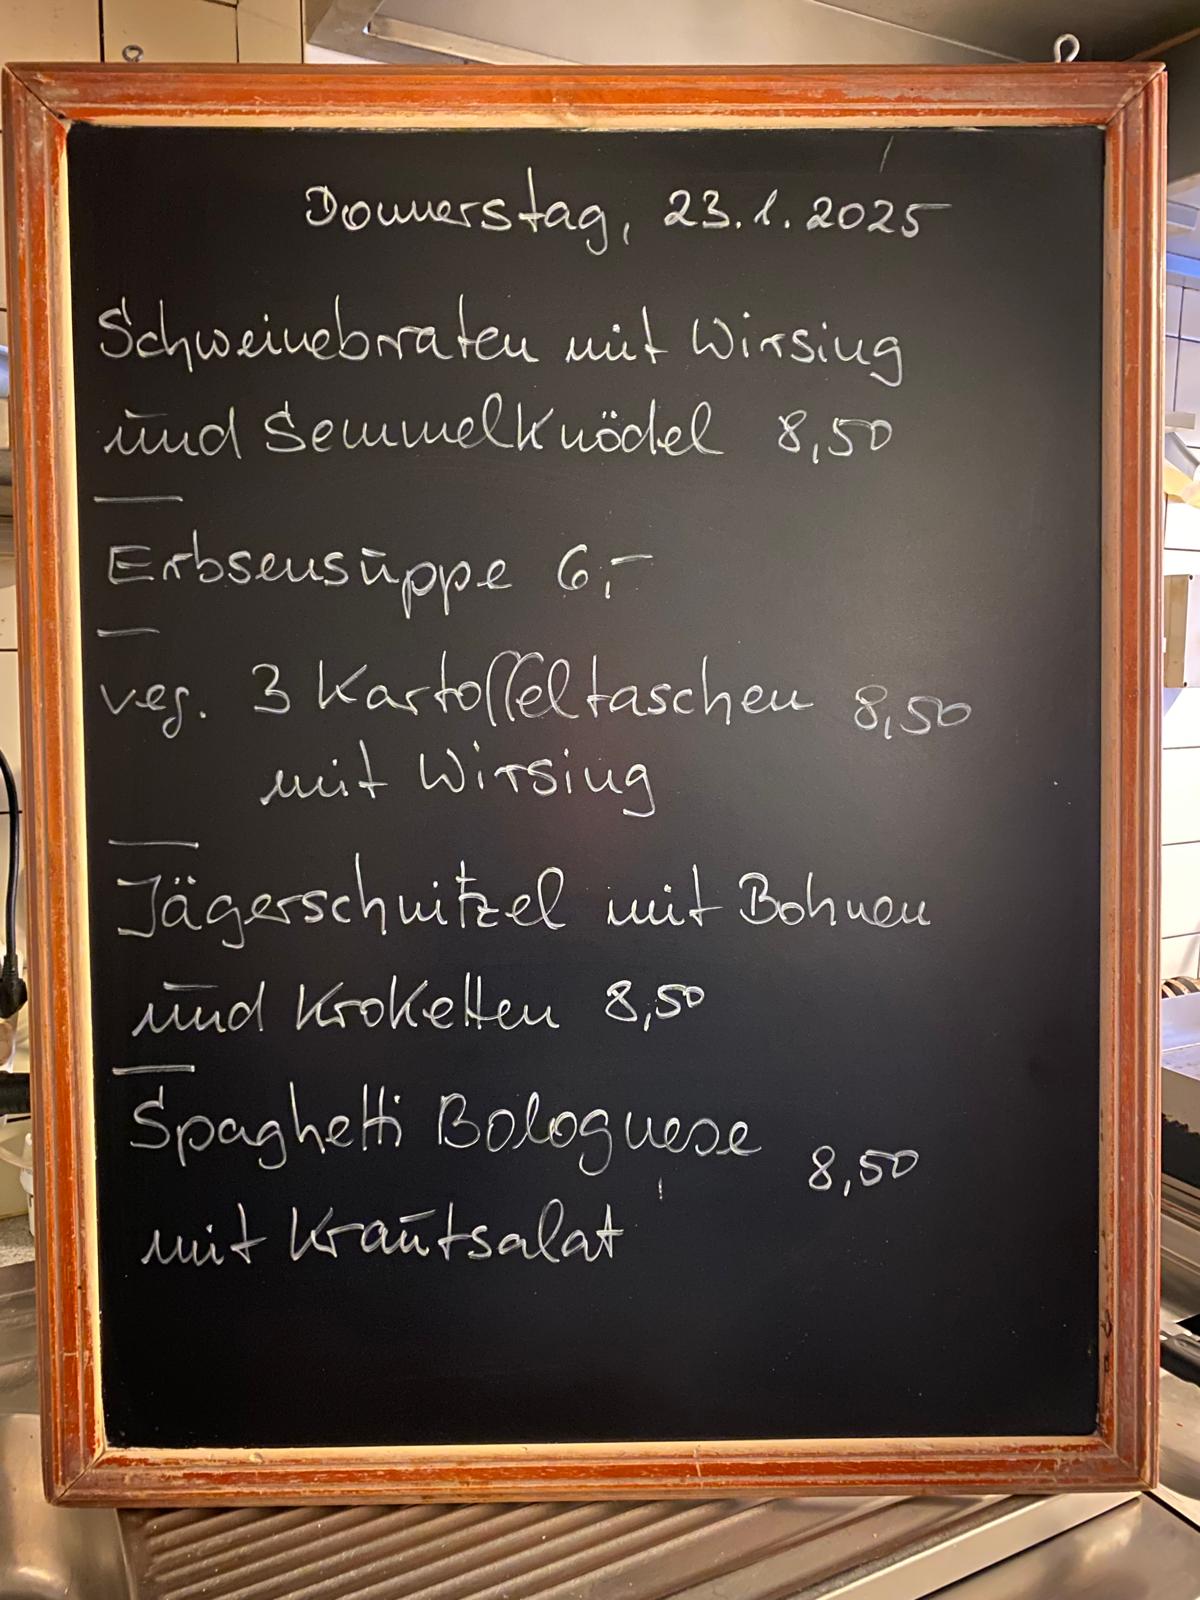 Donnerstag, 23.1.2025
Schweinebraten mit Wirsing
und Semmelknödel 8,50
Erbsensuppe 6,-
veg. 3 Kartoffeltaschen 8,50
mit Wirsing
Jägerschnitzel mit Bohnen
und Kroketten 8,50
Spaghetti Bolognese 8,50
mit Krautsalat